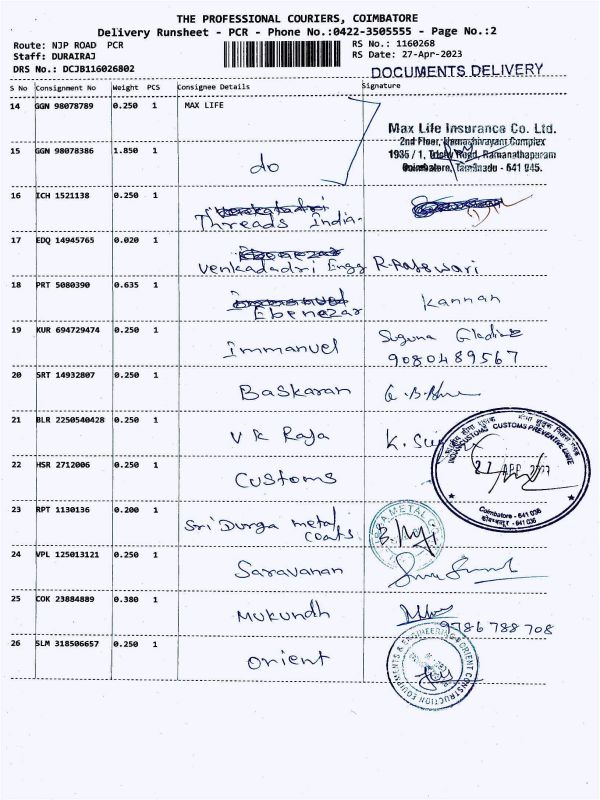 THE PROFESSIONAL COURIERS, COIMBATORE
Delivery Runsheet - PCR - Phone No.:0422-3505555 - Page No.:2
Route: NJP ROAD PCR
RS No.: 1160268
Staff: DURAIRAJ
RS Date: 27-Apr-2023
DRS No.: DCJB116026802
DOCUMENTS DELIVERY
S No Consignment No Weight PCS Consignee Details Signature
14 GGN 98078789 0.250 1 MAX LIFE
Max Life Insurance Co. Ltd.
2nd Floor, Complex
1935 / 1, Trichy Road, Ramanathapuram
Coimbatore, Tamilnadu - 641 045.
15 GGN 98078386 1.850 1 do
16 ICH 1521138 0.250 1 Threads India
17 EDQ 14945765 0.020 1 Venkadadri Engg R. Rajeswari
18 PRT 5080390 0.635 1 Ebenezar Kannan
19 KUR 694729474 0.250 1 Immanuel Suguna
9080489567
20 SRT 14932807 0.250 1 Baskaran
21 BLR 2250540428 0.250 1 V K Raja K.
22 HSR 2712006 0.250 1 Customs
INDIAN CUSTOMS CUSTOMS PREVENTIVE UNIT
27 APR
Coimbatore - 641 036
23 RPT 1130136 0.200 1 Sri Durga metal
coats
METAL
24 VPL 125013121 0.250 1 Saravanan
25 COK 23884889 0.380 1 Mukundh
9786788708
26 SLM 318506657 0.250 1 Orient
ORIENT CONSTRUCTION EQUIPMENTS & ENGINEERING